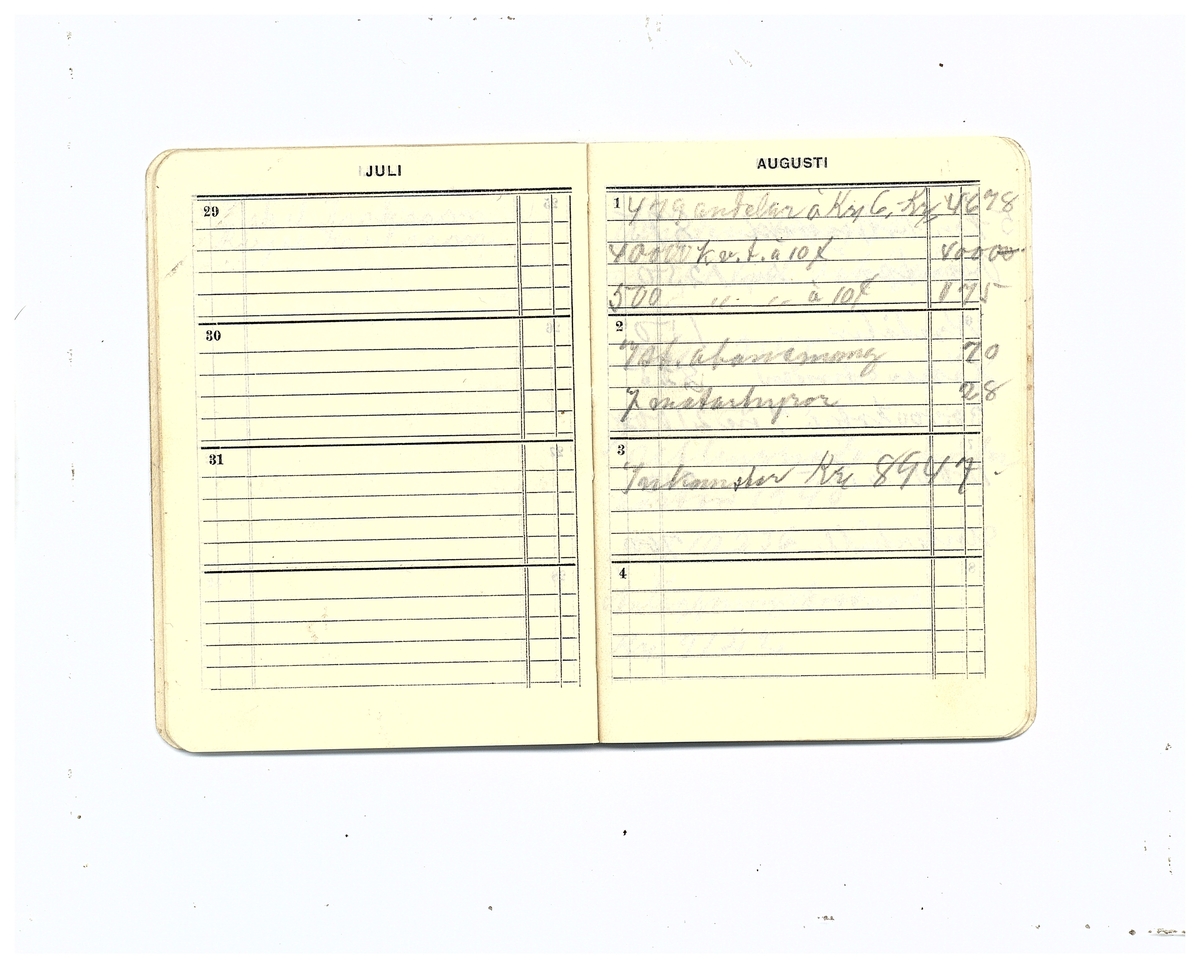 JULI
29
30
31
AUGUSTI
1 479 andelar à Kr 6,- Kr, 4678
40000 kv.t. à 10 4000
500 " " à 10 175
2
7 st. abonemang 70
7 mätarhyror 28
3
Inkomster Kr 8947.
4